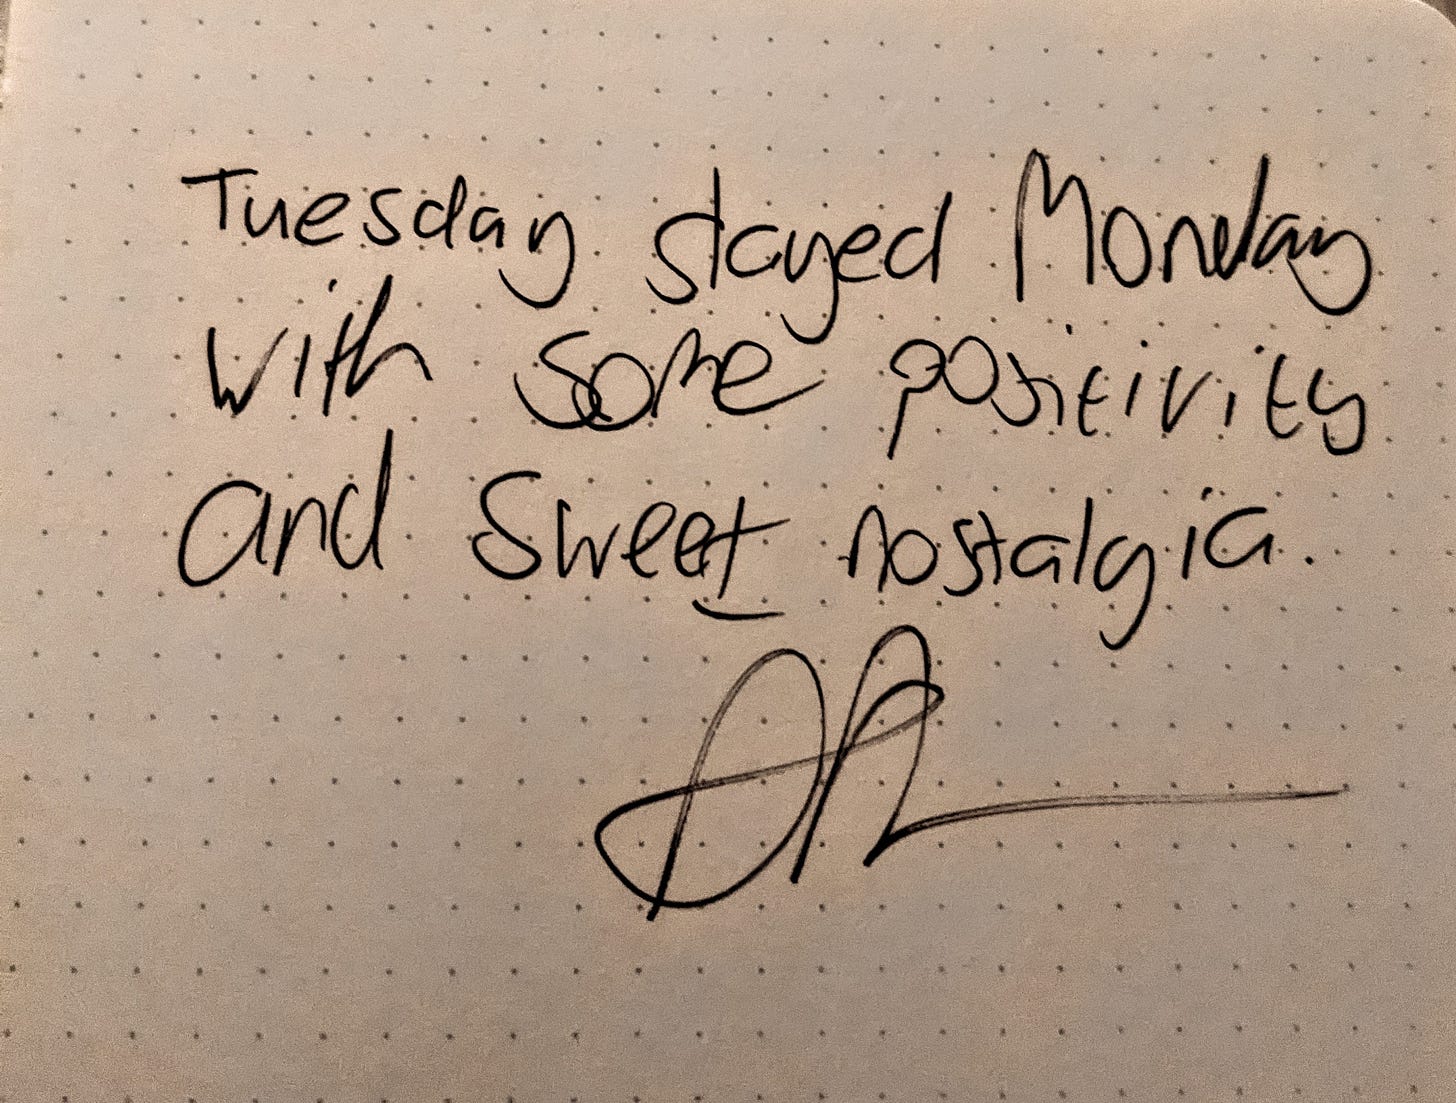 Tuesday stayed Monday
with some positivity
and sweet nostalgia.